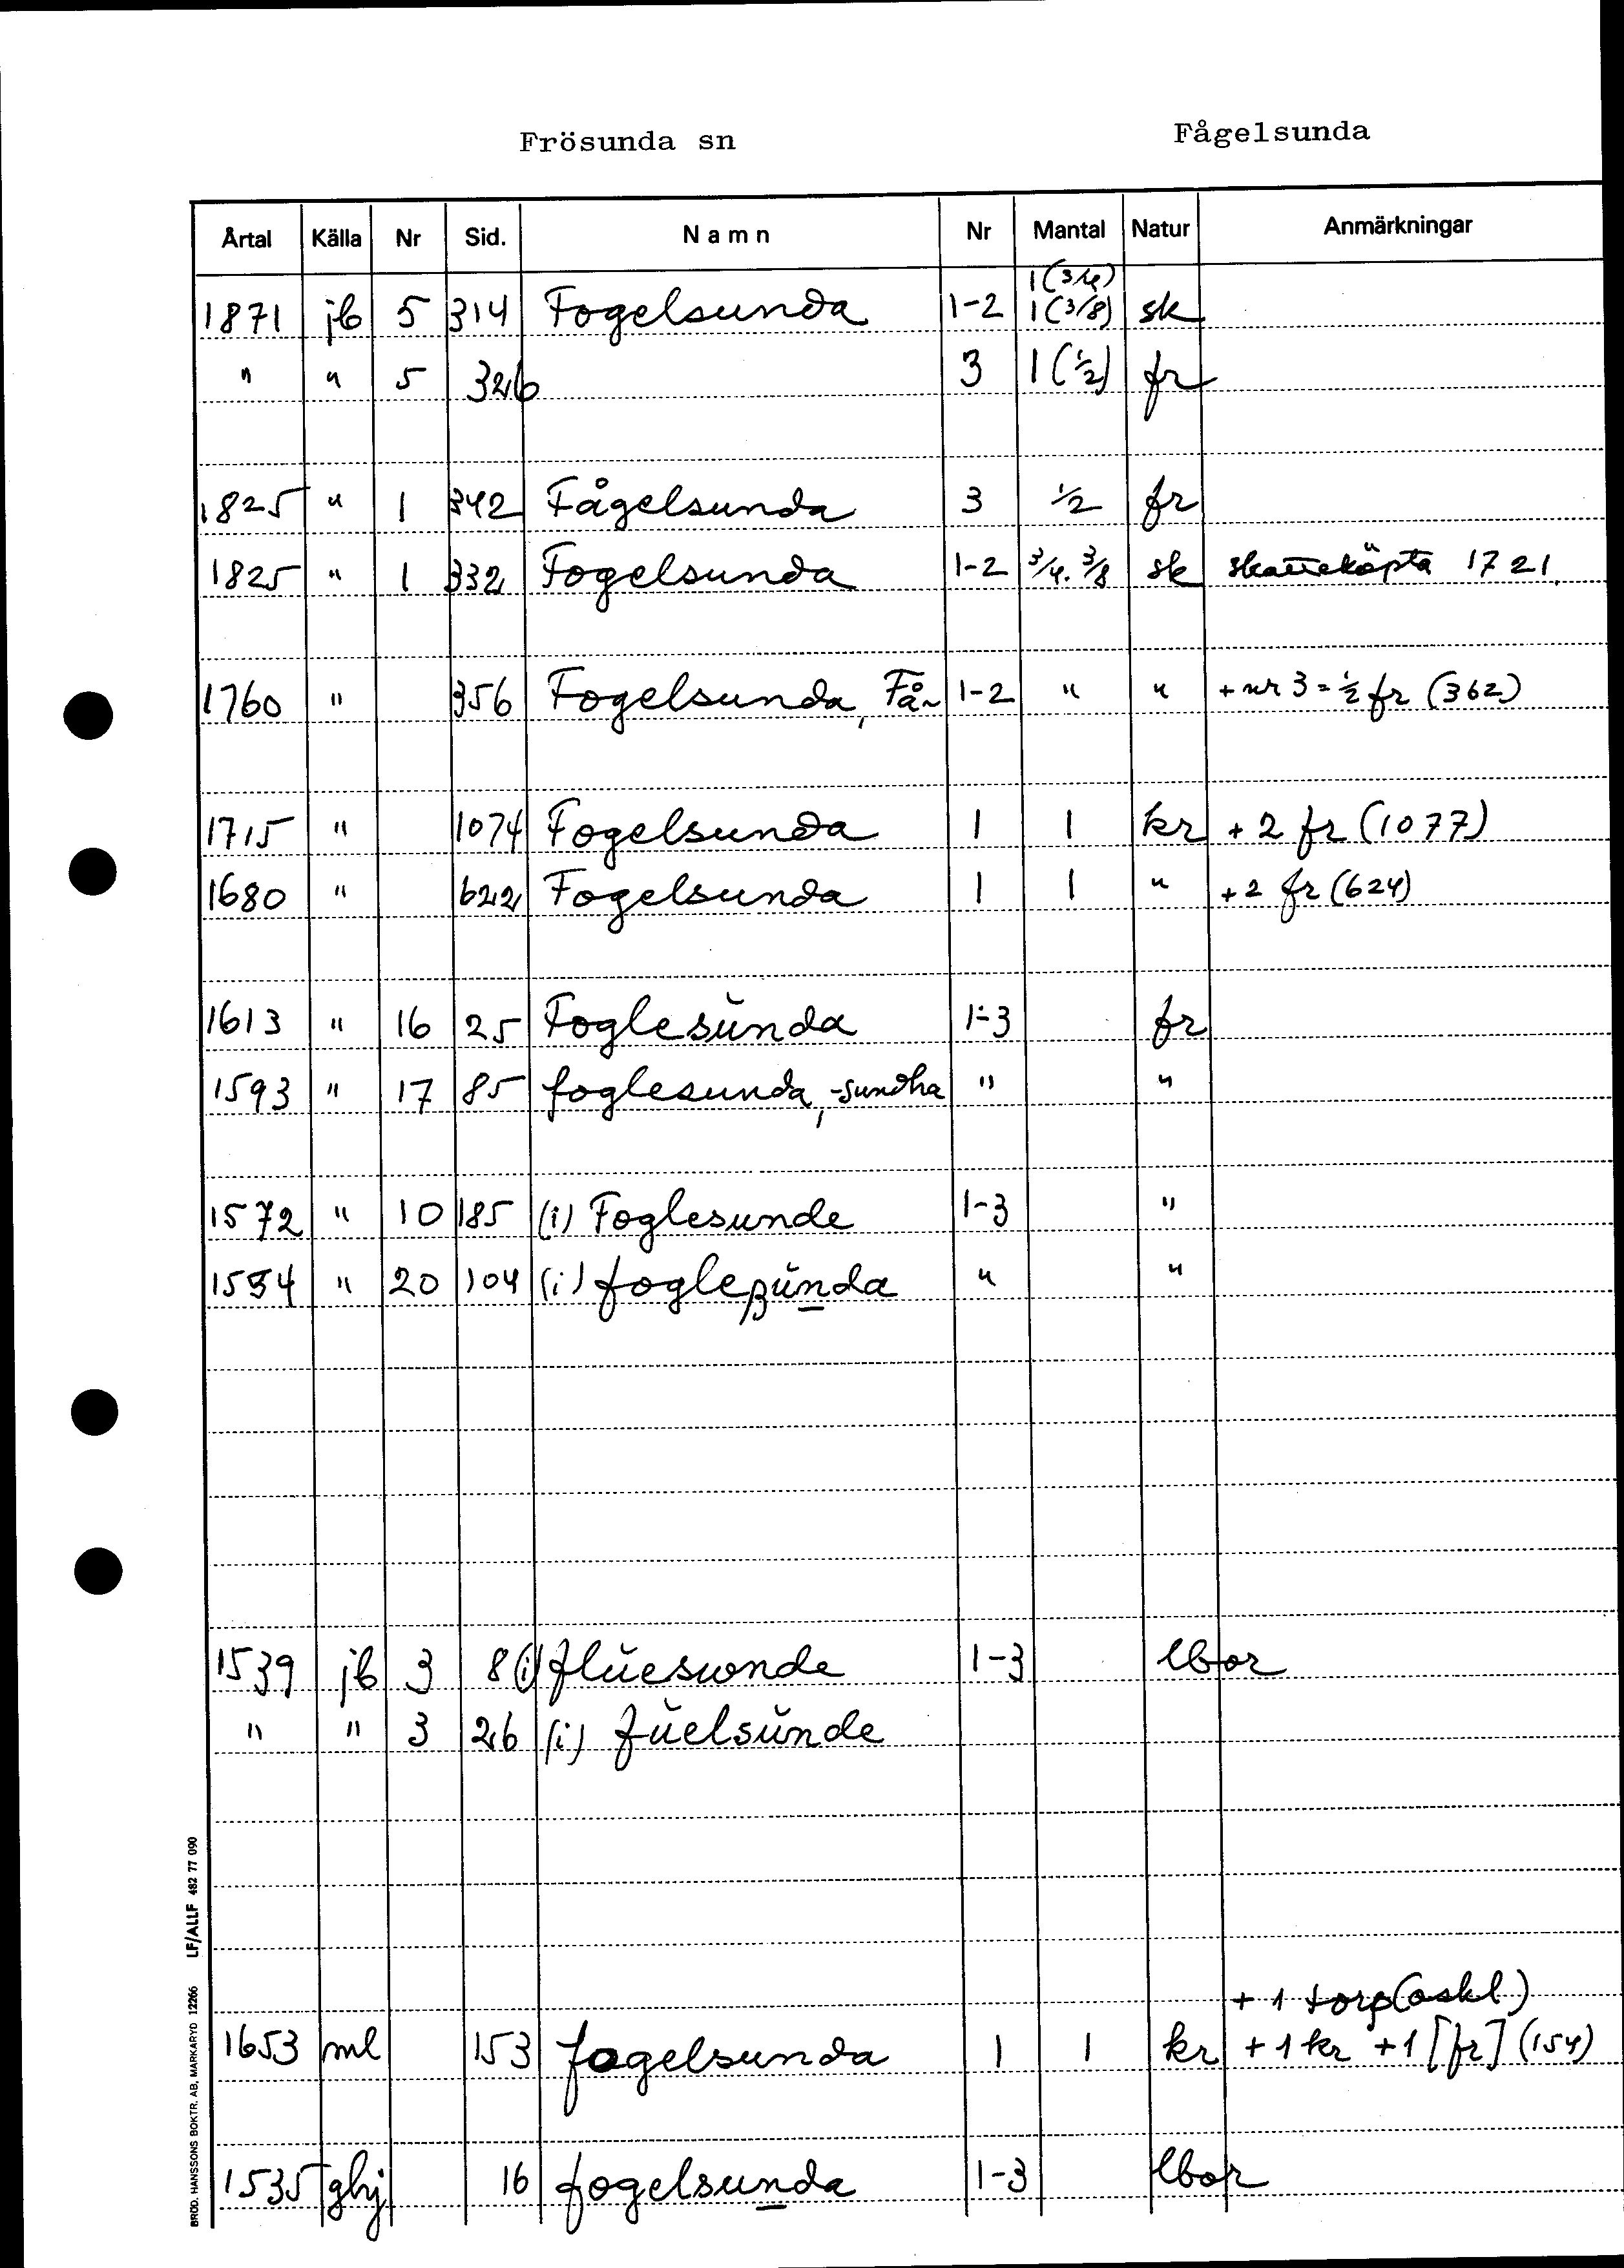 Frösunda sn Fågelsunda
Årtal Källa Nr Sid. Namn Nr Mantal Natur Anmärkningar
1(3/4)
1871 jb 5 314 Fogelsunda 1-2 1(3/8) sk
" " 5 326 3 1(1/2) fr
1825 " 1 342 Fågelsunda 3 1/2 fr
1825 " 1 332 Fogelsunda 1-2 3/4. 3/8 sk skatteköpta 1721.
1760 " 356 Fogelsunda, Få~ 1-2 " " + nr 3 = 1/2 fr (362)
1715 " 1074 Fogelsunda 1 1 kr + 2 fr (1077)
1680 " 622 Fogelsunda 1 1 " + 2 fr (624)
1613 " 16 25 Foglesŭnda 1-3 fr
1593 " 17 85 foglesunda, -sundha " "
1572 " 10 185 (i) Foglesunde 1-3 "
1554 " 20 104 (i) fogleßŭnda " "
1539 jb 3 8 (i) flŭeswnde 1-3 lbor
" " 3 26 (i) fŭelsŭnde
+ 1 torp (oskl.)
1653 ml 153 fogelsunda 1 1 kr + 1 kr + 1 [fr] (154)
1535 ghj 16 fogelsunda 1-3 lbor
BRÖD. HANSSONS BOKTR. AB, MARKARYD 12266 LF/ALLF 482 77 090